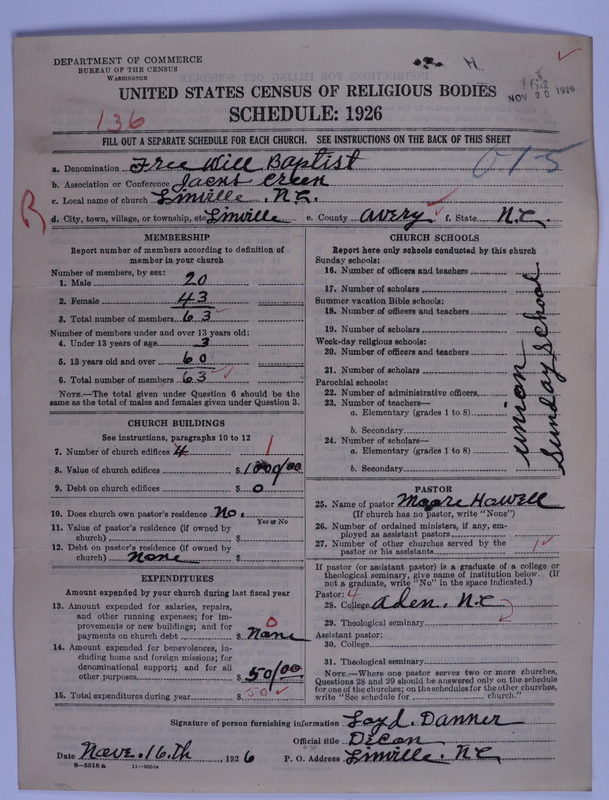 DEPARTMENT OF COMMERCE
BUREAU OF THE CENSUS
WASHINGTON
H.
NOV 20 1926
UNITED STATES CENSUS OF RELIGIOUS BODIES
136
SCHEDULE: 1926
FILL OUT A SEPARATE SCHEDULE FOR EACH CHURCH. SEE INSTRUCTIONS ON THE BACK OF THIS SHEET
015
a. Denomination Free Will Baptist
b. Association or Conference Jacks Creen
c. Local name of church Linville . N.C.
R
d. City, town, village, or township, etc Linville e. County avery f. State N.C.
MEMBERSHIP
Report number of members according to definition of
member in your church
Number of members, by sex:
1. Male 20
2. Female 43
3. Total number of members 63
Number of members under and over 13 years old:
4. Under 13 years of age 3
5. 13 years old and over 60
6. Total number of members 63
NOTE.—The total given under Question 6 should be
same as the total of males and females given under Question 3.
CHURCH BUILDINGS
See instructions, paragraphs 10 to 12
7. Number of church edifices 4 1
8. Value of church edifices $1000/00
9. Debt on church edifices $ 0
10. Does church own pastor's residence? No.
Yes or No
11. Value of pastor's residence (if owned by
church) $
12. Debt on pastor's residence (if owned by
church) None $
EXPENDITURES
Amount expended by church during last fiscal year
13. Amount expended for salaries, repairs,
and other running expenses; for im-
provements or new buildings; and for
payments on church debt $ None 0
14. Amount expended for benevolences, in-
cluding home and foreign missions; for
denominational support; and for all
other purposes $50/00
15. Total expenditures during year $ 50
CHURCH SCHOOLS
Report here only schools conducted by this church
Sunday schools:
16. Number of officers and teachers
17. Number of scholars
Summer vacation Bible schools:
18. Number of officers and teachers
19. Number of scholars
Week-day religious schools:
20. Number of officers and teachers
21. Number of scholars
Parochial schools:
22. Number of administrative officers
23. Number of teachers—
a. Elementary (grades 1 to 8)
b. Secondary
24. Number of scholars—
a. Elementary (grades 1 to 8)
b. Secondary
union
Sunday School
PASTOR
25. Name of pastor Moore Howell
(If church has no pastor, write "None")
26. Number of ordained ministers, if any, em-
ployed as assistant pastors
27. Number of other churches served by the
pastor or his assistants 1
If pastor (or assistant pastor) is a graduate of a college or
theological seminary, give name of institution below. (If
not a graduate, write "No" in the space indicated.)
Pastor: 4
28. College aden. N.C
29. Theological seminary
Assistant pastor:
30. College
31. Theological seminary
NOTE.—Where one pastor serves two or more churches,
Questions 28 and 29 should be answered only on the schedule
for one of the churches; on the schedules for the other churches,
write "See schedule for church."
Signature of person furnishing information Loyd. Danner
Official title Decon
Date Nove. 16.th 1926 P. O. Address Linville. N.C
8-5518a 11-9554a